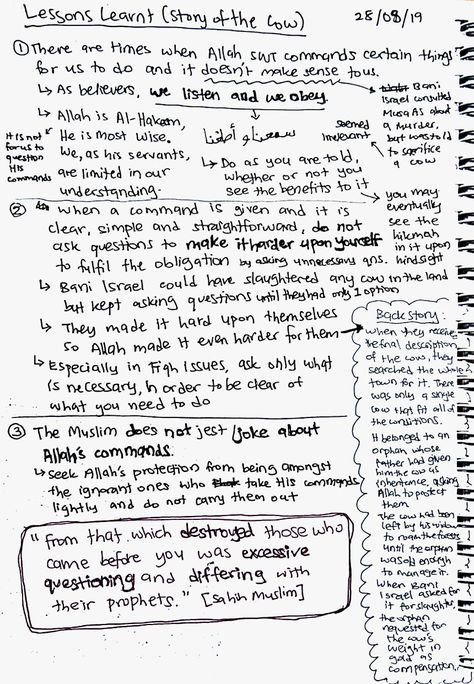 Lessons Learnt (Story of the Cow)
28/08/19
① There are times when Allah SWT commands certain things
for us to do and it doesn't make sense to us.
↳ As believers, we listen and we obey.
سمعنا و أطعنا
↳ Allah is Al-Hakeem,
He is most wise.
We, as his servants,
are limited in our
understanding.
It is not
for us to
question
His
commands
↳ Do as you are told,
whether or not you
see the benefits to it
Bani
Israel consulted
Musa AS about
a murder,
but was told
to sacrifice
a cow
seemed
irrelevant
you may
eventually
see the
hikmah
in it upon
hindsight
② When a command is given and it is
clear, simple and straightforward, do not
ask questions to make it harder upon yourself
to fulfil the obligation by asking unnecessary qns.
↳ Bani Israel could have slaughtered any cow in the land
but kept asking questions until they had only 1 option
↳ They made it hard upon themselves
so Allah made it even harder for them →
↳ Especially in Fiqh issues, ask only what
is necessary, in order to be clear of
what you need to do
③ The Muslim does not jest/joke about
Allah's commands.
↳ seek Allah's protection from being amongst
the ignorant ones who take His commands
lightly and do not carry them out
"From that which destroyed those who
came before you was excessive
questioning and differing with
their prophets." [Sahih Muslim]
Back story:
when they received
the final description
of the cow, they
searched the whole
town for it. There
was only a single
cow that fit all of
the conditions.
It belonged to an
orphan whose
father had given
him the cow as
inheritance, asking
Allah to protect
them
The cow had been
left by his widow
to roam the forests
until the orphan
was old enough
to manage it.
When Bani
Israel asked for
it for slaughter,
the orphan
requested for
the cow's
weight in
gold as
compensation.